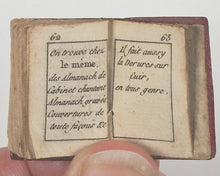 62
On trouve chez
le même,
des Almanach de
Cabinet chantant
Almanach gravés
Couvertures de
toute façons &c
63
Il fait aussy
la Dorures sur
Cuir,
en tous genre.